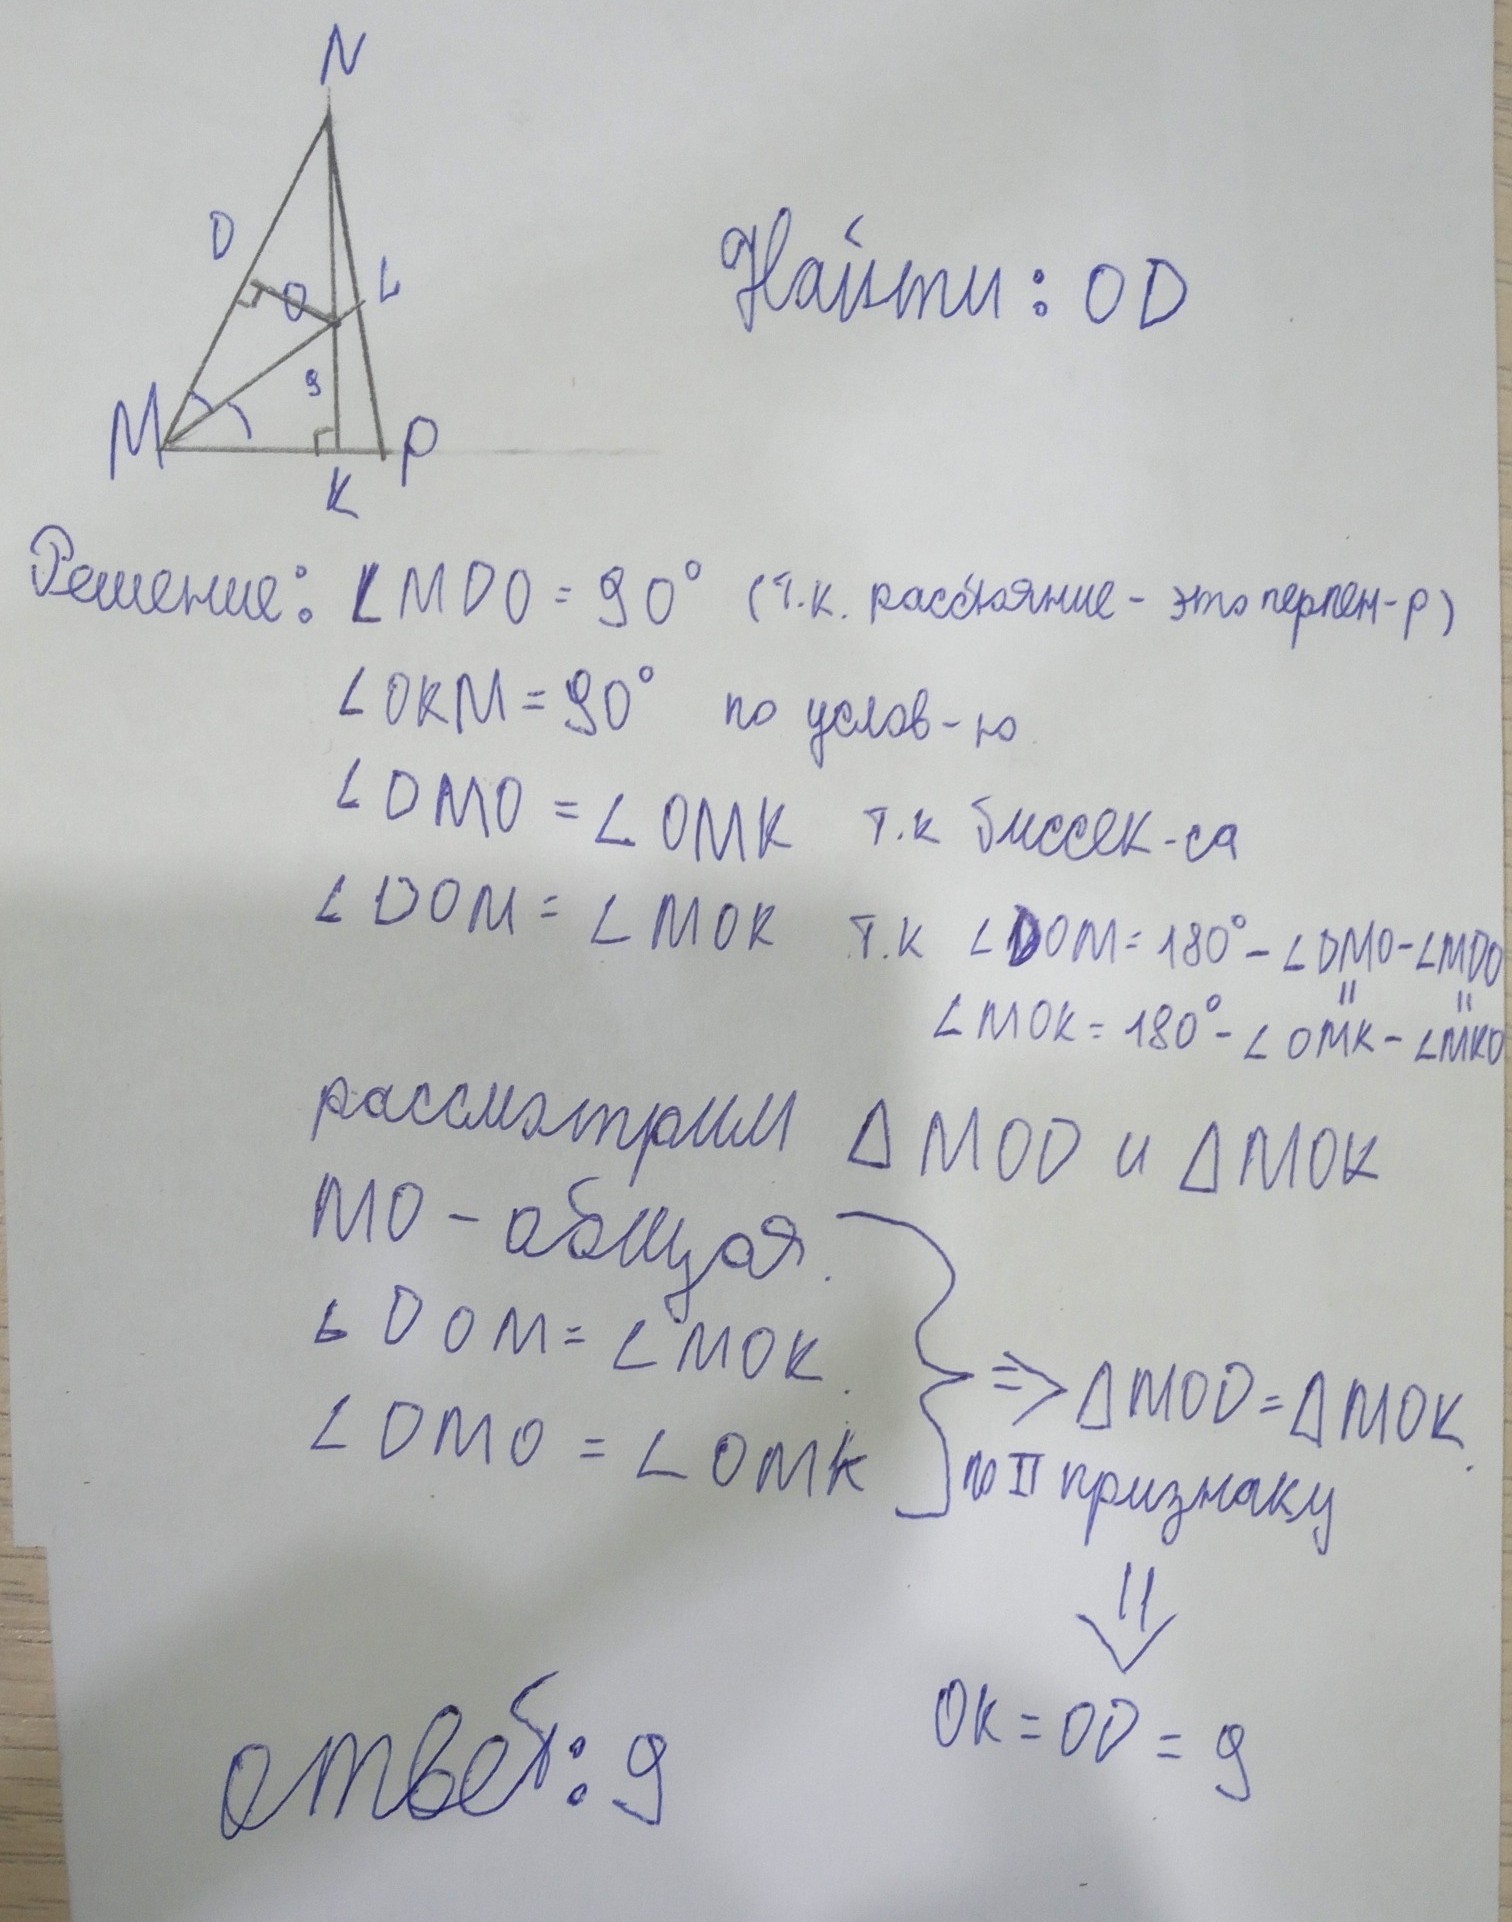 N
D
O
L
Найти: OD
9
M
P
K
Решение: ∠MDO = 90° (т.к. расстояние - это перпен-р)
∠OKM = 90° по услов-ю
∠DMO = ∠OMK т.к биссек-са
∠DOM = ∠MOK т.к ∠DOM = 180° - ∠DMO - ∠MDO
॥ ॥
∠MOK = 180° - ∠OMK - ∠MKO
рассмотрим Δ MOD и Δ MOK
MO - общая.
∠DOM = ∠MOK.
∠DMO = ∠OMK
=> ΔMOD = ΔMOK.
по II признаку
OK = OD = 9
ответ: 9